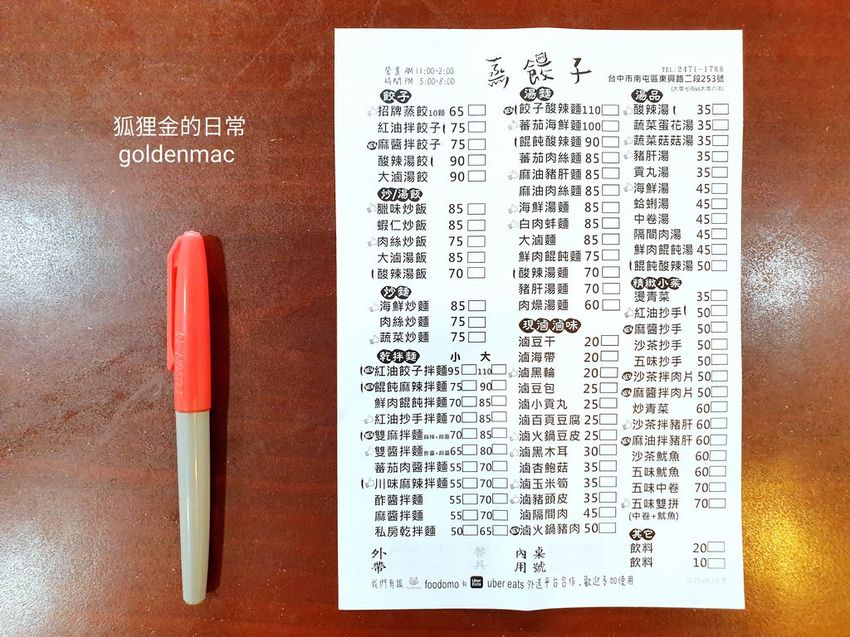 狐狸金的日常
goldenmac
營業 AM 11:00-2:00
時間 PM 5:00-8:00
蒸餃子
TEL:2471-1788
台中市南屯區東興路二段253號
餃子
招牌蒸餃10顆 65
紅油餃子 75
麻醬拌餃子 75
酸辣湯餃 90
大滷湯餃 90
炒/湯飯
臘味炒飯 85
蝦仁炒飯 85
肉絲炒飯 75
大滷湯飯 85
酸辣湯飯 70
炒麵
海鮮炒麵 85
肉絲炒麵 75
蔬菜炒麵 75
乾拌麵 小 大
紅油餃子拌麵 95 110
餛飩麻辣拌麵 75 90
鮮肉餛飩拌麵 70 85
紅油抄手拌麵 70 85
雙麻拌麵 麻辣+麻醬 70 85
雙醬拌麵 酢醬+麻醬 65 80
蕃茄肉醬拌麵 55 70
川味麻辣拌麵 55 70
酢醬拌麵 55 70
麻醬拌麵 55 70
私房乾拌麵 50 65
湯麵
餃子酸辣麵 110
蕃茄海鮮麵 100
餛飩酸辣麵 90
蕃茄肉絲麵 85
麻油豬肝麵 85
麻油肉絲麵 85
海鮮湯麵 85
白肉蚌麵 85
大滷麵 85
鮮肉餛飩麵 75
酸辣湯麵 70
豬肝湯麵 70
肉燥湯麵 60
現滷滷味
滷豆干 20
滷海帶 20
滷黑輪 20
滷豆包 25
滷小貢丸 25
滷百頁豆腐 25
滷火鍋豆皮 25
滷黑木耳 30
滷杏鮑菇 35
滷玉米筍 35
滷豬頭皮 35
滷隔間肉 45
滷火鍋豬肉 50
湯品
酸辣湯 35
蔬菜蛋花湯 35
蔬菜菇菇湯 35
豬肝湯 35
貢丸湯 35
海鮮湯 45
蛤蜊湯 45
中卷湯 45
隔間肉湯 45
鮮肉餛飩湯 45
餛飩酸辣湯 50
精緻小菜
燙青菜 35
紅油抄手 50
麻醬抄手 50
沙茶抄手 50
五味抄手 50
沙茶拌肉片 50
麻醬拌肉片 50
炒青菜 60
沙茶拌豬肝 60
麻油拌豬肝 60
沙茶魷魚 60
五味魷魚 60
五味中卷 70
五味雙拼 70
(中卷+魷魚)
其它
飲料 20
飲料 10
外帶 餐具 內用 桌號
我們有跟 foodomo 和 Uber Eats uber eats 外送平台合作，歡迎多加使用